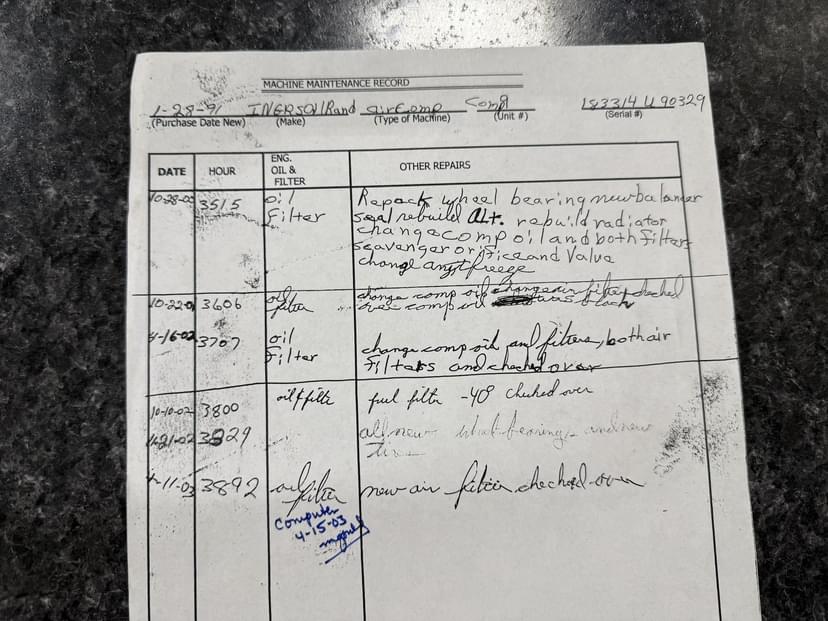 MACHINE MAINTENANCE RECORD
1-28-91 INERSOllRand airComp Comp 183314 U 90329
(Purchase Date New) (Make) (Type of Machine) (Unit #) (Serial #)
DATE HOUR ENG. OIL & FILTER OTHER REPAIRS
10-28-00 3515 oil Filter Repack wheel bearing new balancer
seal rebuild Alt. rebuild radiator
change comp oil and both filters
scavenger orifice and Valve
change antifreeze
10-22-01 3606 oil filter change comp oil change air filter checked
over comp oil was black
4-16-02 3707 oil Filter change comp oil and filters, both air
filters and checked over
10-10-02 3800 oil & filter fuel filter -40° checked over
3829 all new wheel bearings and new
tires
11-03 3892 oil filter new air filter checked over
Computer
4-15-03